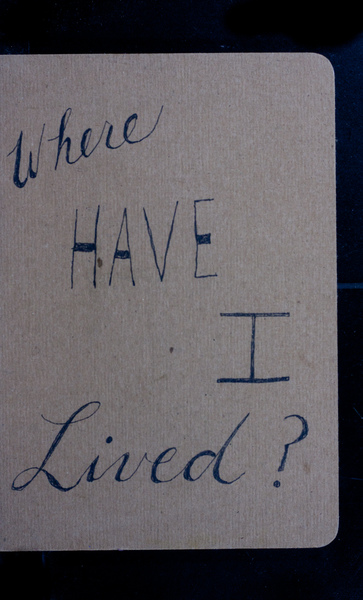 Where
HAVE
I
Lived?